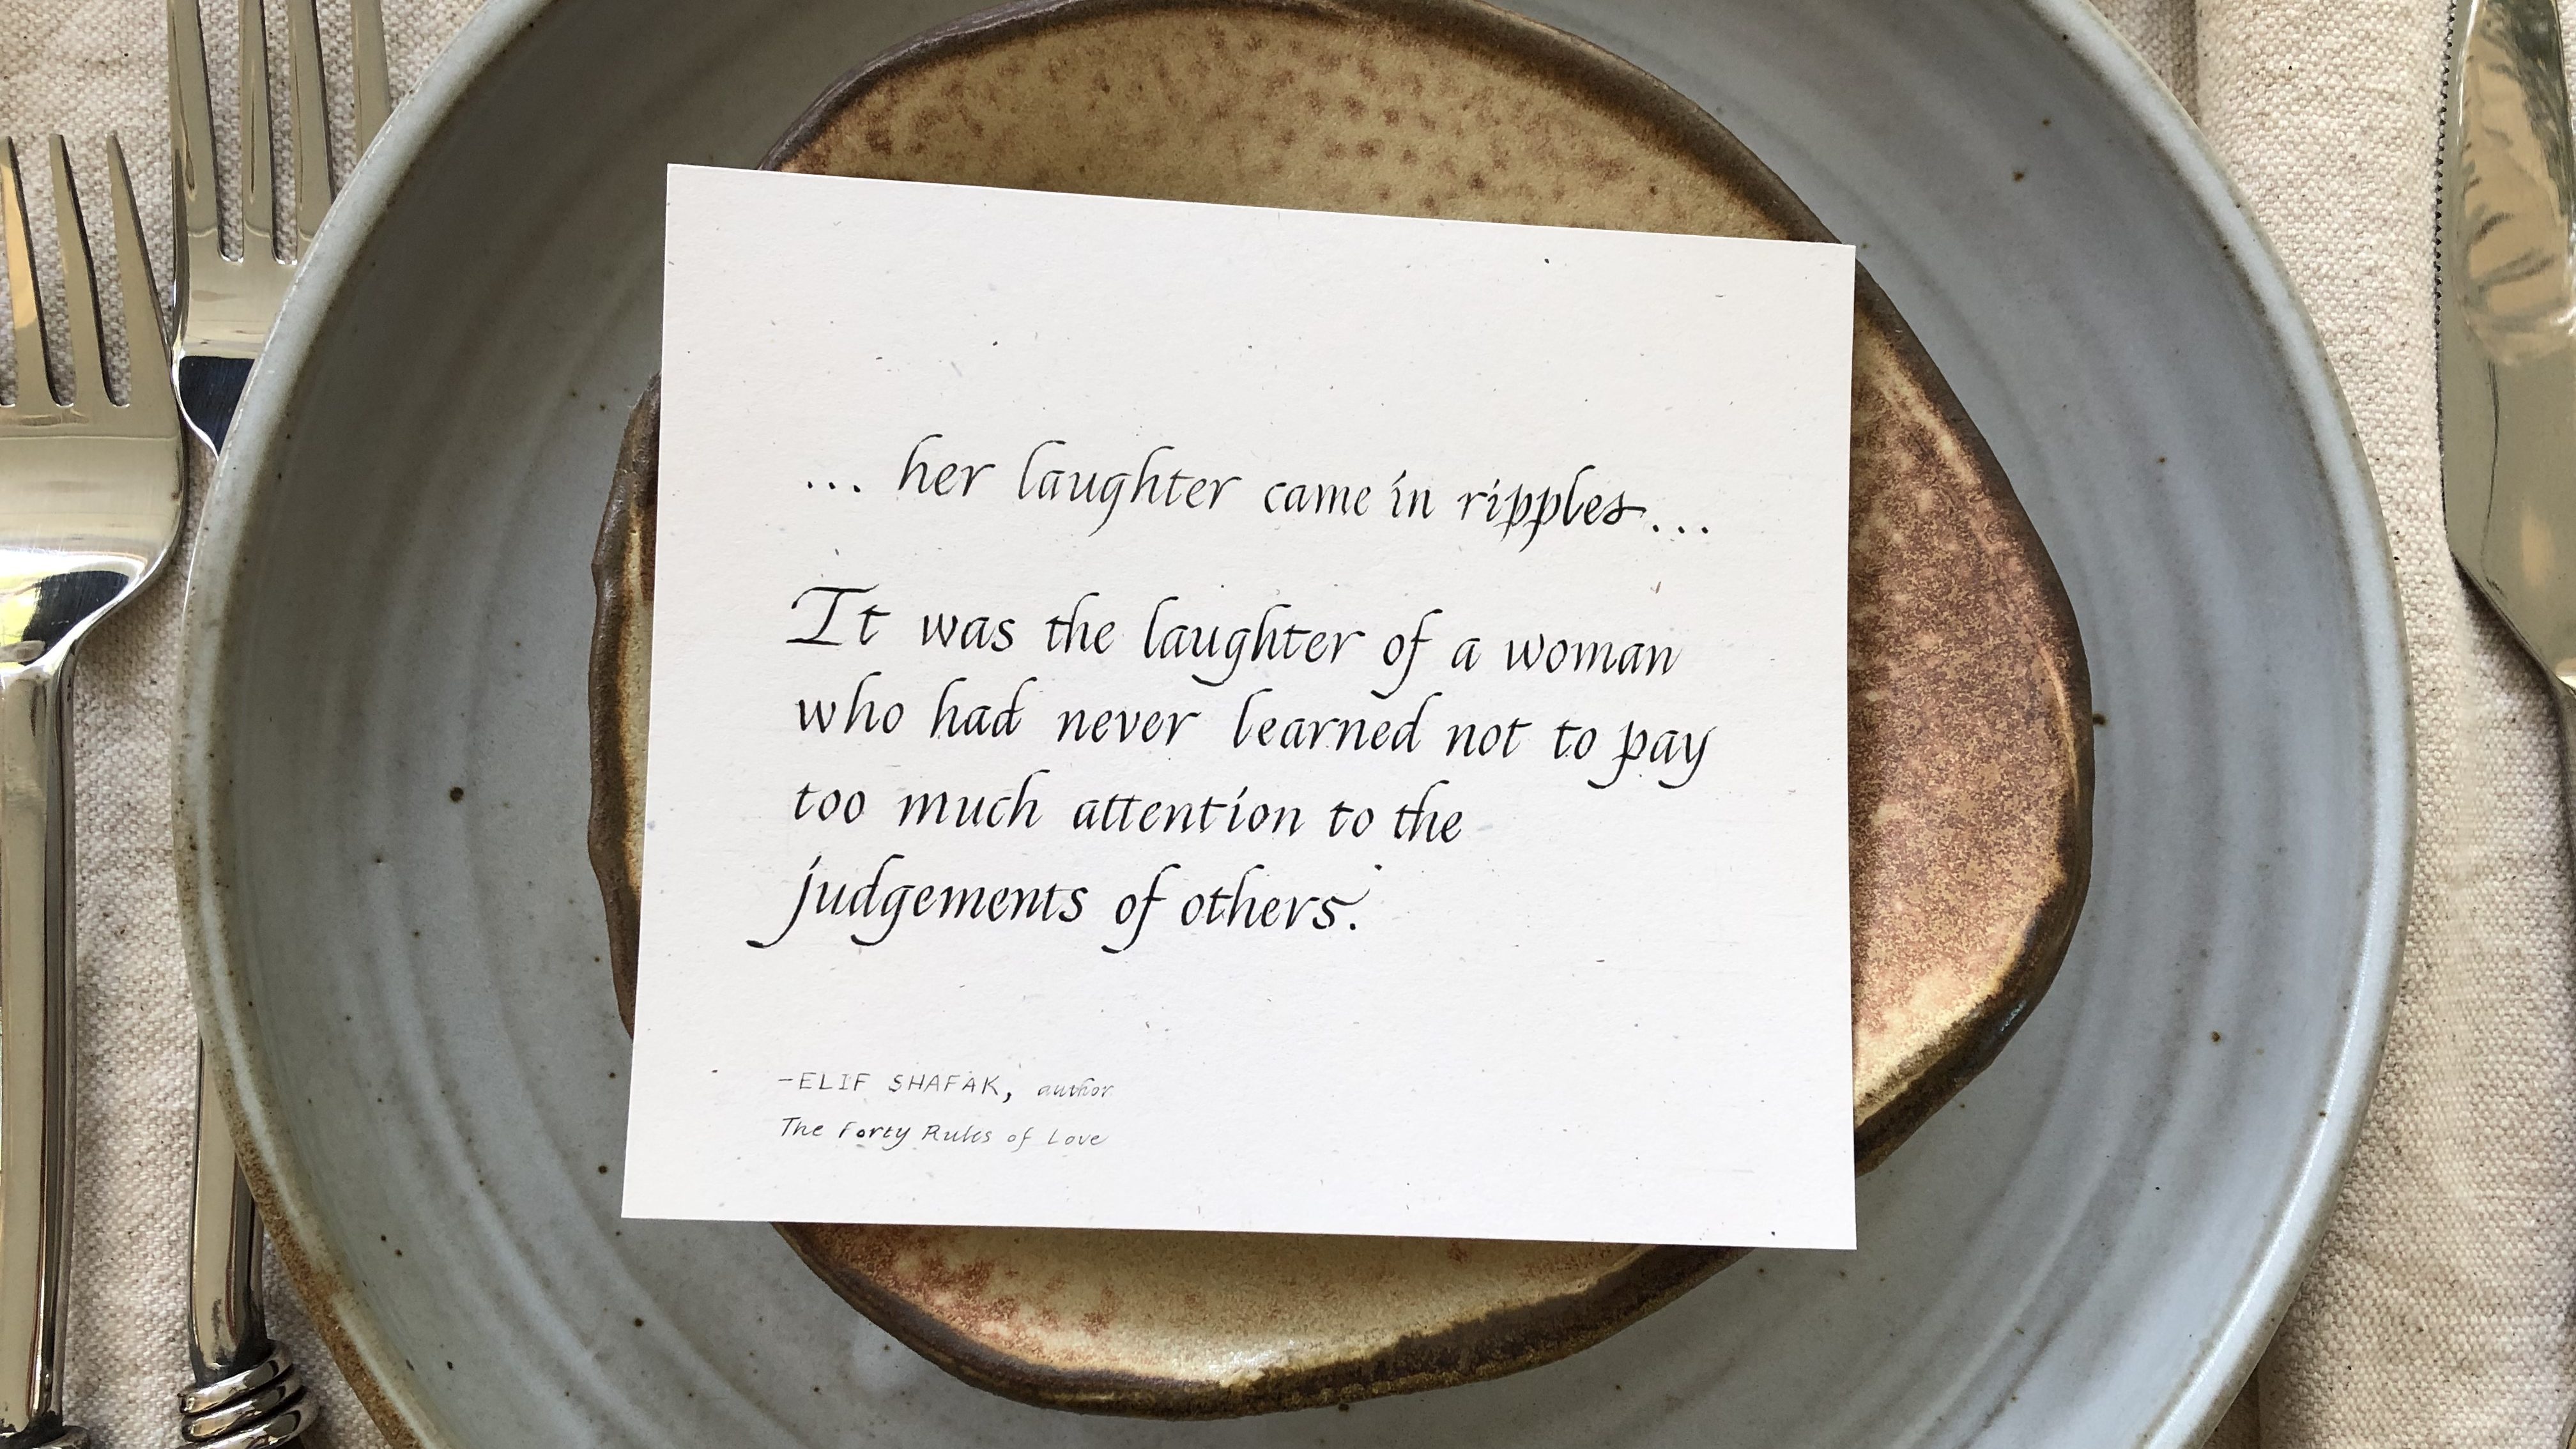 ... her laughter came in ripples...
It was the laughter of a woman
who had never learned not to pay
too much attention to the
judgements of others.
-ELIF SHAFAK, author
The Forty Rules of Love